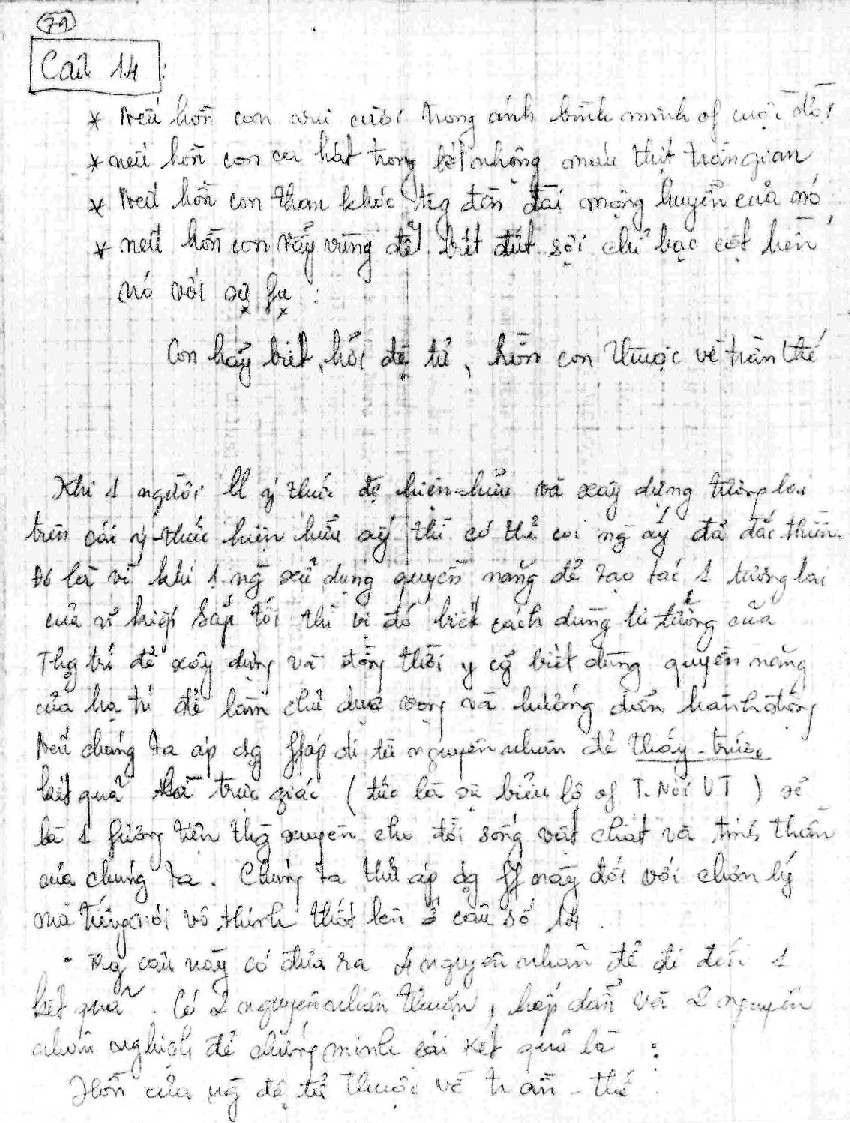 79
Câu 14 :
* Nếu hồn con vui cười trong ánh bình minh of cuộc đời
* nếu hồn con ca hát trong bột nhộng máu thịt trần gian
* Nếu hồn con than khóc trg đền đài mộng huyền của nó
* nếu hồn con vẫy vùng để bứt đứt sợi chỉ bạc cột liền
nó với sự fụ :
Con hãy biết, hỡi đệ tử, hồn con thuộc về trần thế
Khi 1 người ý thức hiện-hữu và xây dựng tương lai
trên cái ý-thức hiện hữu ấy thì có thể coi ng ấy đã đắc thiền.
Đó là vì khi 1 ng xử dụng quyền năng để tạo tác 1 tương lai
của vĩ kiếp sắp tới thì vị đó biết cách dùng tư tưởng của
Thg trí để xây dựng và đồng thời y cg biết dùng quyền năng
của hạ trí để làm chủ dục vọng và hướng dẫn hành động
Nếu chúng ta áp dg ffáp đi từ nguyên nhân để thấy trước
kết quả trực giác ( tức là sự biểu lộ of T. Nói VT ) sẽ
là 1 fương tiện thg xuyên cho đời sống vật chất và tinh thần
của chúng ta. Chúng ta thử áp dg ff này đối với chân lý
mà tiếng nói vô thinh thốt lên ở câu số 14.
- Trg câu này có đưa ra 4 nguyên nhân để đi đến 1
kết quả. Có 2 nguyên nhân thuận, hấp dẫn và 2 nguyên
nhân nghịch để chứng minh cái kết quả là :
Hồn của ng đệ tử thuộc về trần-thế